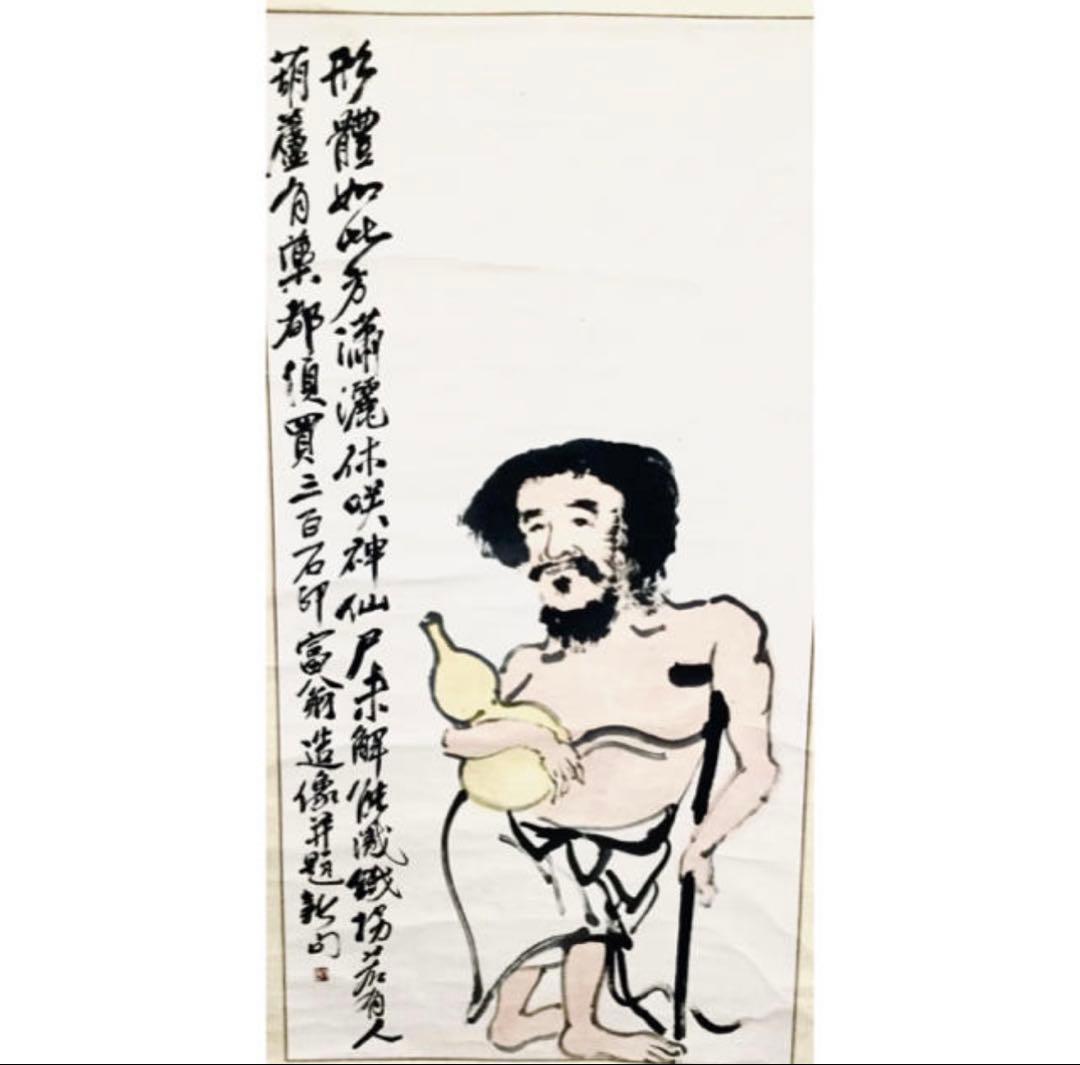 形體如此方瀟灑休咲神仙尸未解能鐵拐若有人
葫蘆有藥都須買三百石印富翁造像并題新句